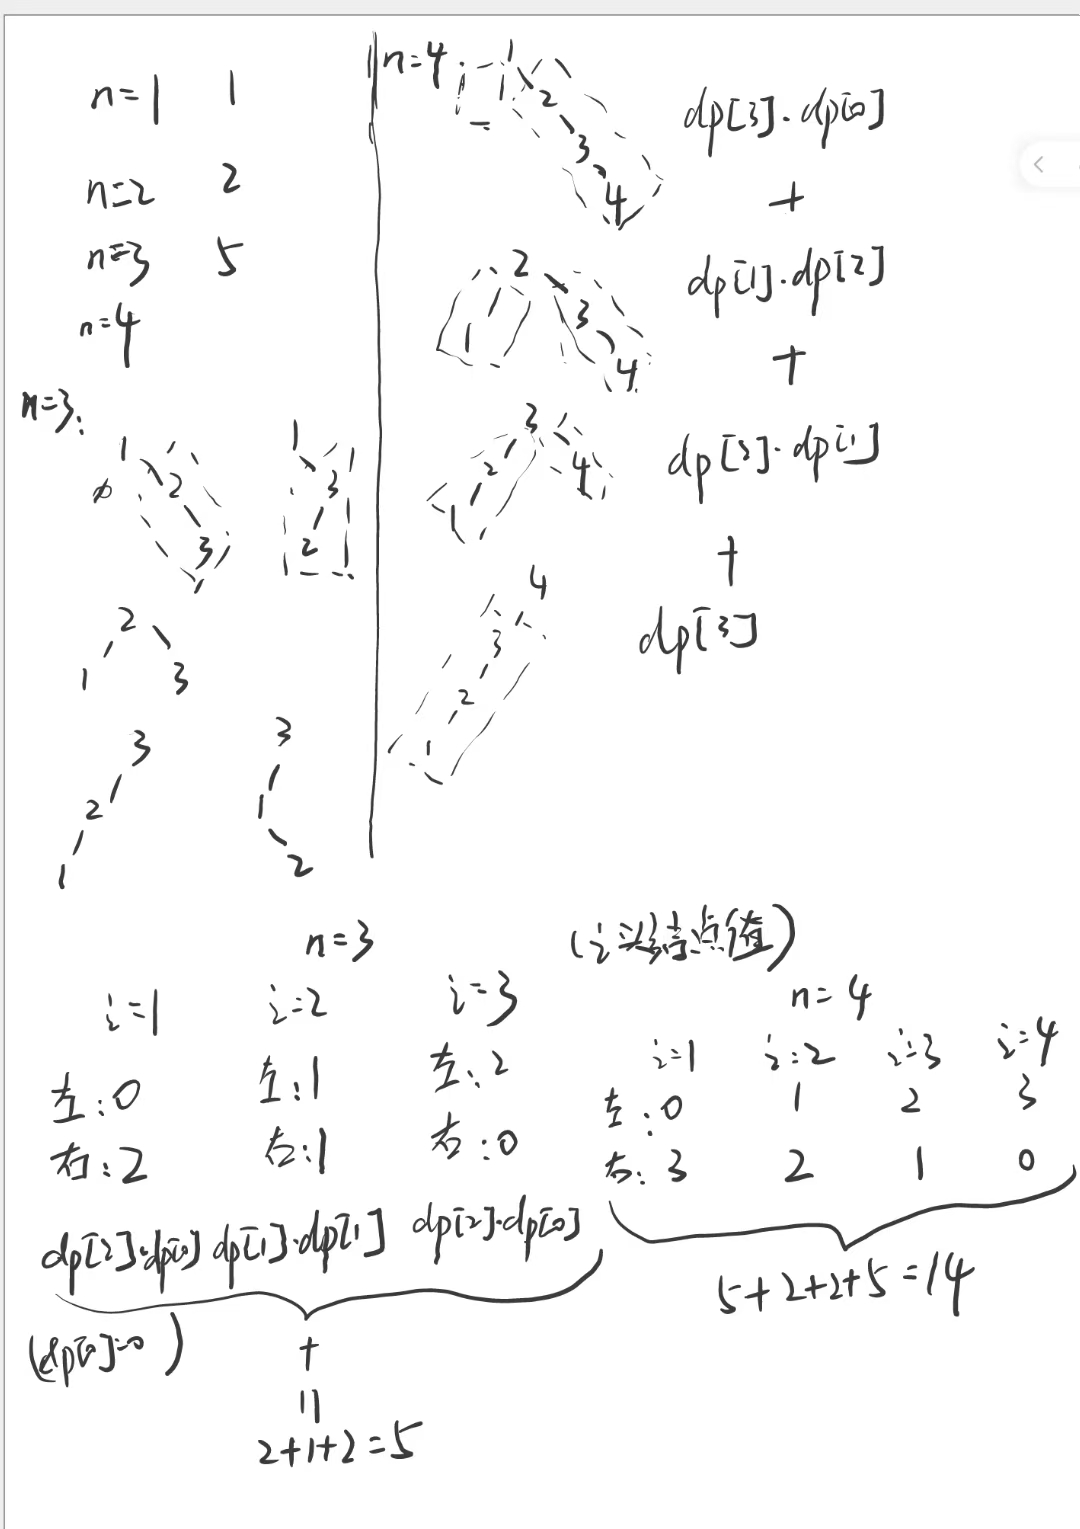 n=1 1
n=2 2
n=3 5
n=4
n=3:
1
2
∅
3
1
3
2
2
1 3
3
2
1
3
1
2
n=4
1
2
3
4
dp[3]·dp[0]
+
2
1 3
4
dp[1]·dp[2]
+
3
2 4
1
dp[2]·dp[1]
+
4
3
2
1
dp[3]
n=3
i=1 i=2 i=3
左:0 左:1 左:2
右:2 右:1 右:0
dp[2]·dp[0] dp[1]·dp[1] dp[2]·dp[0]
(dp[0]=0)
+
=
2+1+2=5
(i头结点值)
n=4
i=1 i=2 i=3 i=4
左:0 1 2 3
右:3 2 1 0
5+2+2+5=14